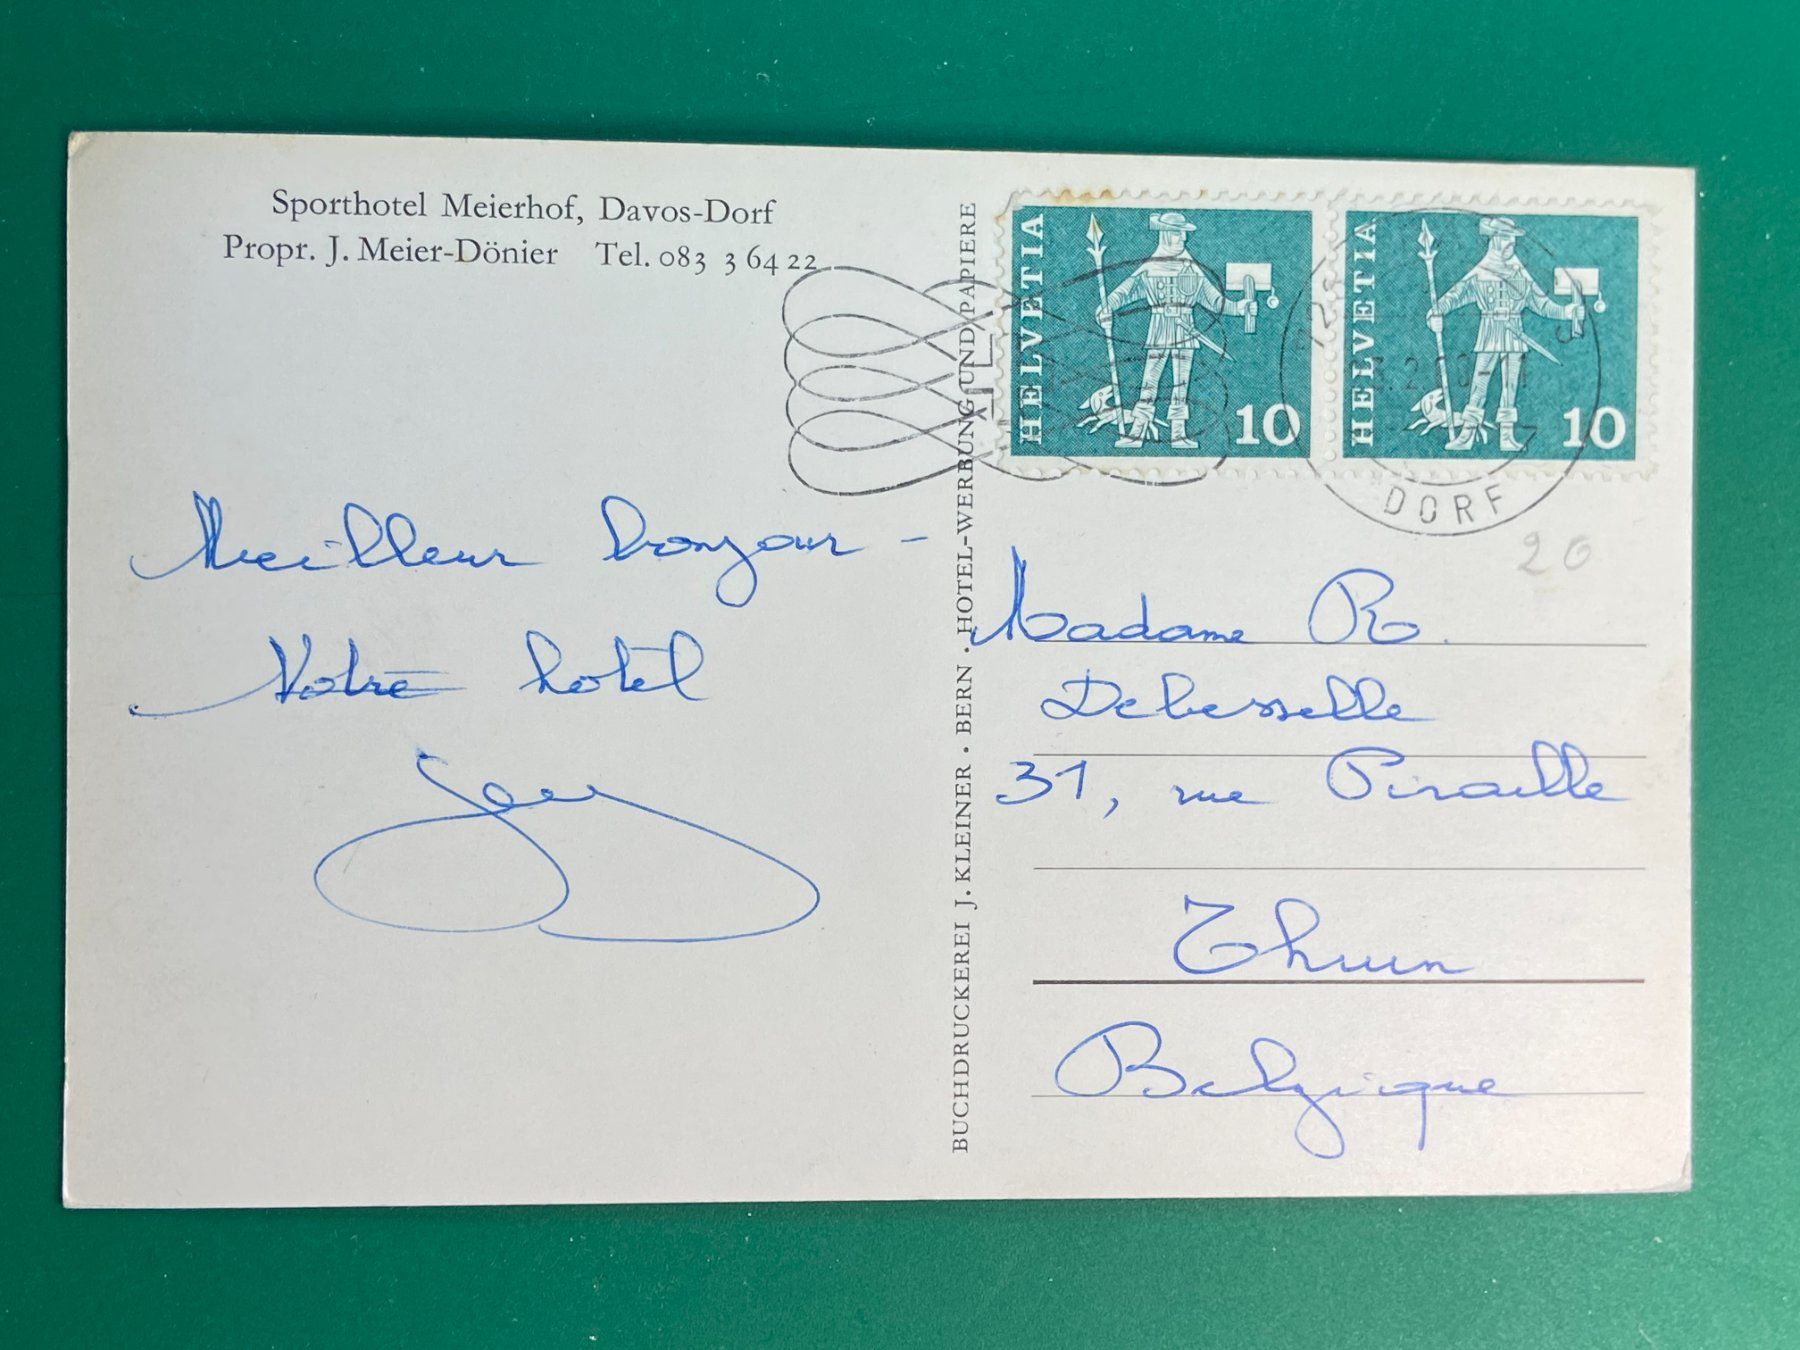 Sporthotel Meierhof, Davos-Dorf
Propr. J. Meier-Dönier Tel. 083 3 64 22
Meilleur bonjour -
Notre hotel
BUCHDRUCKEREI J. KLEINER · BERN · HOTEL-WERBUNG UND PAPIERE
HELVETIA
10
HELVETIA
10
DORF
20
Madame R.
Debesselle
31, rue Piraille
Thuin
Belgique